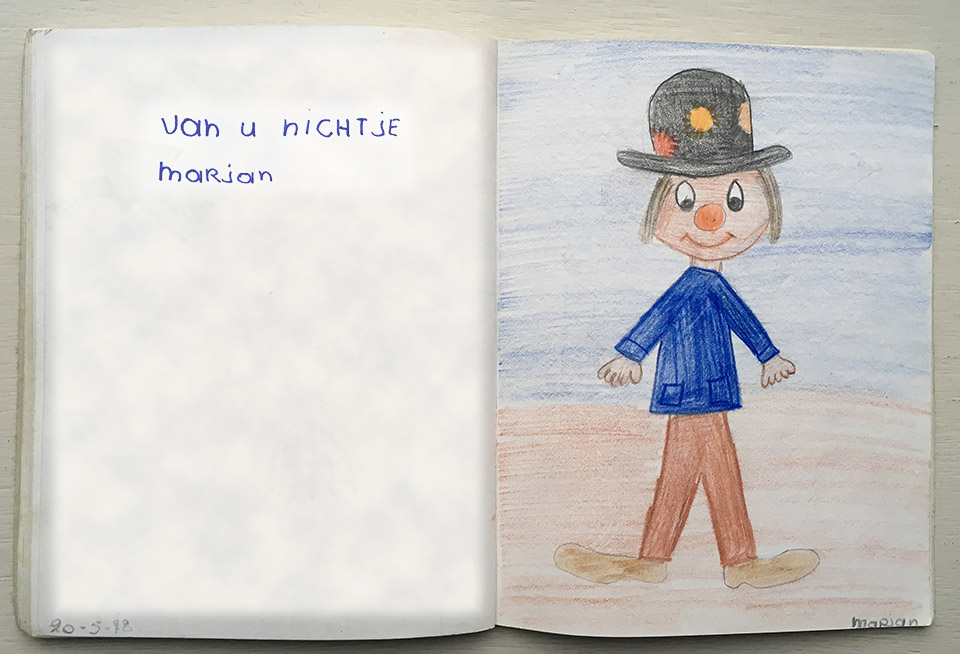 van u nichtje
marjan
20-5-78
marjan